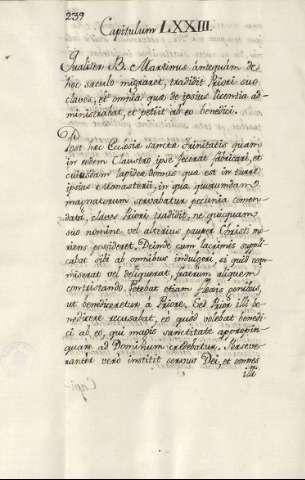 239
Capitulum LXXIII.
Qualiter B. Martinus antequàm de
hoc saeculo migraret, tradidit Priori suo
claves, et omnia quae de ipsius licentia ad-
ministrabat, et petiit ab eo benedici.
Post haec Ecclesia sanctae Trinitatis quam
in eodem Claustro ipse fecerat fabricari, et
cuiusdam lapideae domus quae est in turre
ipsius Monasterii, in qua quorumdam
magnatorum servabatur pecunia commen-
data, claves Priori tradidit, ne quicquam
suo nomine vel alterius pauper Christi mo-
riens possideret. Deinde cum lacrimis suppli-
cabat sibi ab omnibus indulgeri, si quid com-
miserat vel deliquerat, fratrum aliquem
contristando. Petebat etiam flexis genibus,
ut benediceretur à Priore. Sed Prior illi be-
nedicere recusabat, eo quod volebat benedi-
ci ab eo, qui magis sanctitate appropin-
quare ad Dominum credebatur. Perseve-
ranter verò institit servus Dei, et omnes
illi